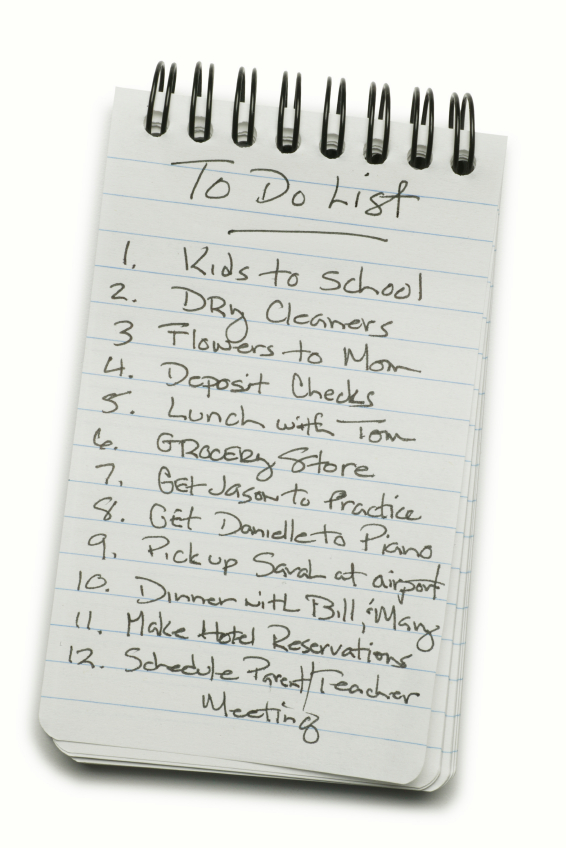 To Do List
1. Kids to School
2. DRy Cleaners
3 Flowers to Mom
4. Deposit Checks
5. Lunch with Tom
6. GROCERy Store
7. GEt Jason to Practice
8. GEt Danielle to Piano
9. Pick up Sarah at airport
10. Dinner with Bill, & Mary
11. Make Hotel Reservations
12. Schedule Parent/Teacher
Meeting